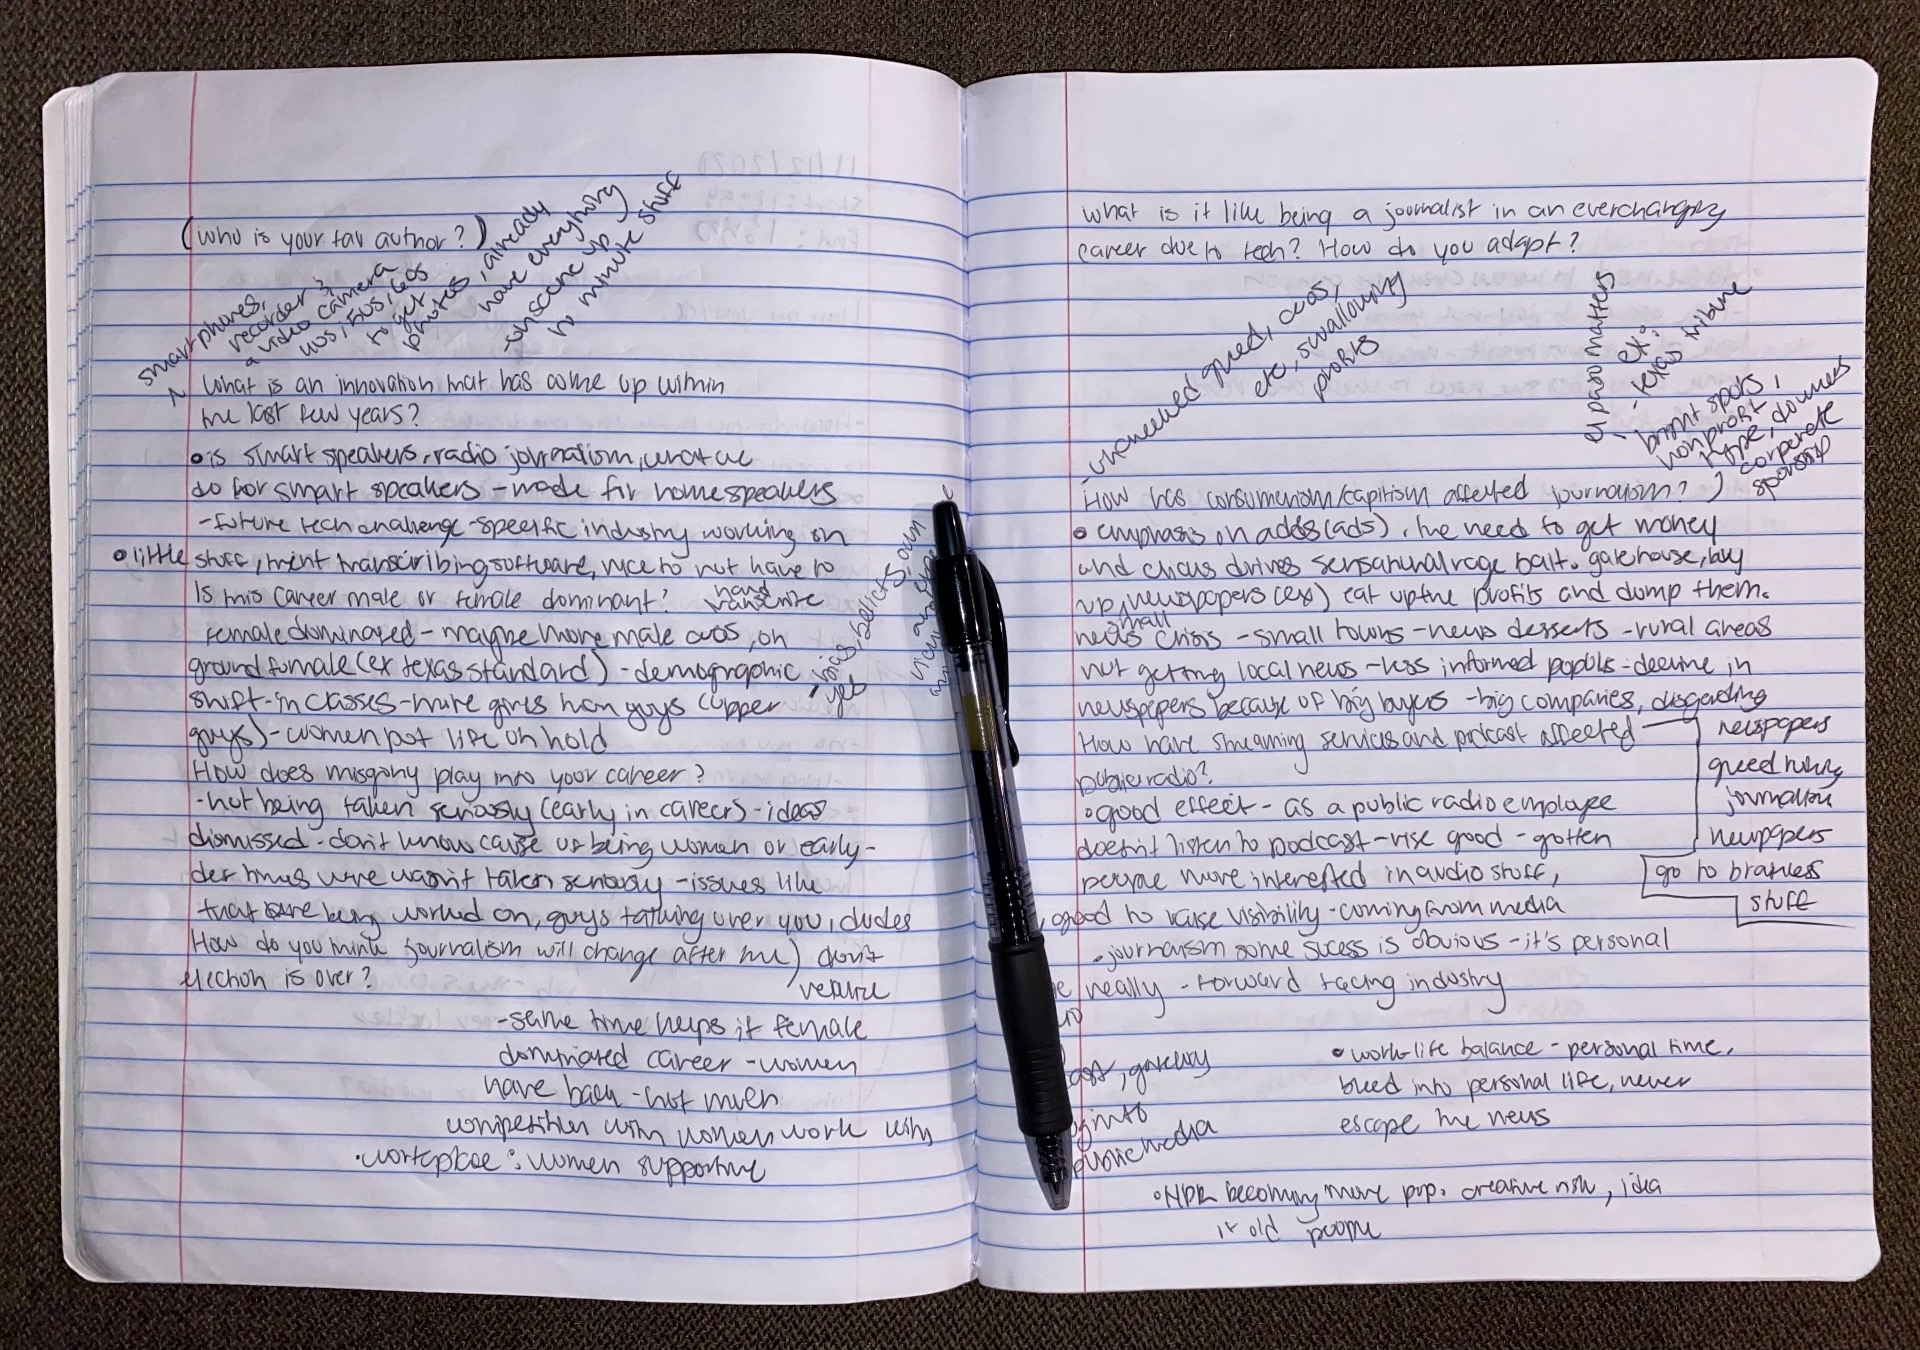 (who is your fav author?)
smartphones,
recorder &
a video camera
40s, 50s, 60s
to get
photos, already
have everything
-unscene up
in minute stuff
What is an innovation that has come up within
the last few years?
• is smart speakers, radio journalism, what we
do for smart speakers - made for homespeakers
- future tech challenge - specific industry working on
• little stuff, trint transcribing software, nice to not have to
hand
transcribe
Is this career male or female dominant?
female dominated - maybe more male ceos, on
ground female (ex texas standard) - demographic
shift - in classes - more girls than guys (upper
guys) - women put life on hold
How does misgony play into your career?
- not being taken seriously (early in career) - ideas
dismissed - don't know cause of being women or early -
der times were wasn't taken seriously - issues like
that are being worked on, guys talking over you, dudes
don't
How do you think journalism will change after the
election is over?
- same time helps if female
dominated career - women
have back - not much
competition with women work with
• workplace : women supportive
What is it like being a journalist in an everchanging
career due to tech? How do you adapt?
- unchecked greed, ceos,
etc, swallowing
profits
el paso matters
ex:
- texas tribune
bright spots,
nonprofit
type, downers
corperete
sponsop
How has consumerism/capitism affected journalism?
• emphasis on adds (ads), the need to get money
and clicks drives sensatunal rage bait. gatehouse, buy
up small newspapers (ex) eat up the profits and dump them.
news crisis - small towns - news desserts - rural areas
not getting local news - less informed populs - decline in
newspepers because of big buyers - big companies, disgarding
newspepers
greed ruining
journalism
newpapers
go to brainless
stuff
How have streaming services and podcast affected
public radio?
• good effect - as a public radio employee
doesn't listen to podcast - rise good - gotten
people more interested in audio stuff,
, good to raise visibility - coming from media
• journalism some sucess is obvious - it's personal
really - forward facing industry
, gateway
into
public media
• work-life balance - personal time,
bleed into personal life, never
escape the news
• NPR becoming more pop. creative now, idea
it old people